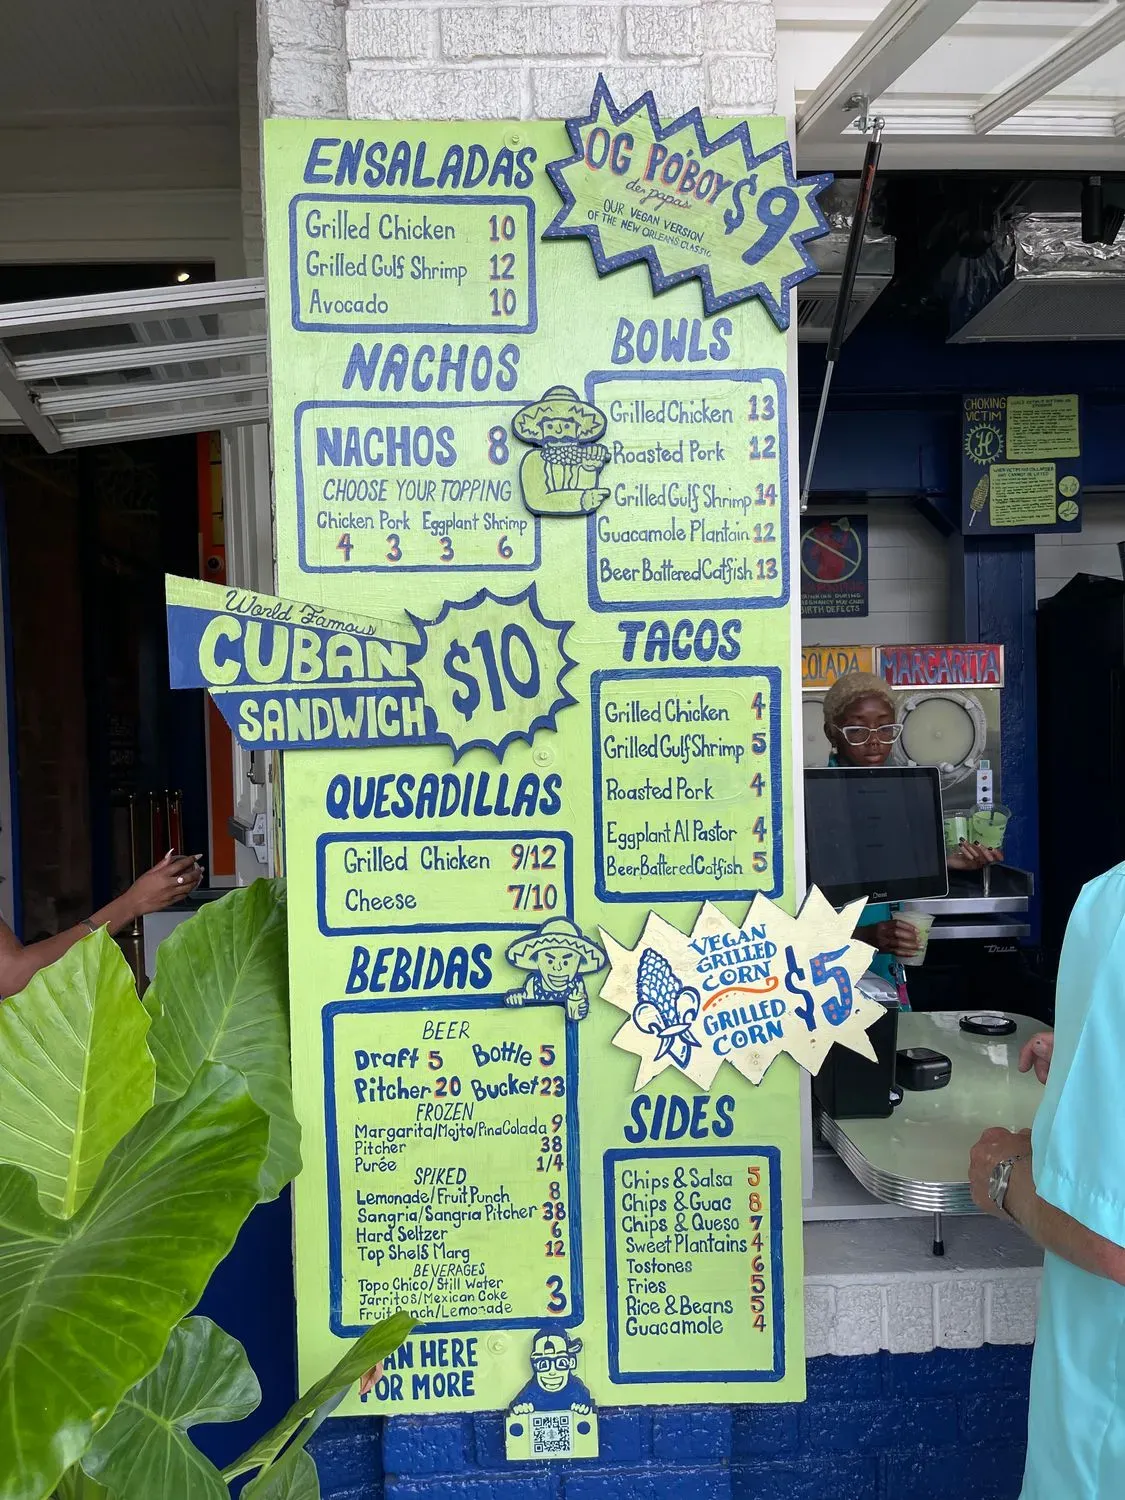 ENSALADAS
Grilled Chicken 10
Grilled Gulf Shrimp 12
Avocado 10
OG PO'BOY $9
de papas
OUR VEGAN VERSION
OF THE NEW ORLEANS CLASSIC
NACHOS
NACHOS 8
CHOOSE YOUR TOPPING
Chicken Pork Eggplant Shrimp
4 3 3 6
BOWLS
Grilled Chicken 13
Roasted Pork 12
Grilled Gulf Shrimp 14
Guacamole Plantain 12
Beer Battered Catfish 13
World Famous
CUBAN
SANDWICH
$10
TACOS
Grilled Chicken 4
Grilled Gulf Shrimp 5
Roasted Pork 4
Eggplant Al Pastor 4
Beer Battered Catfish 5
QUESADILLAS
Grilled Chicken 9/12
Cheese 7/10
VEGAN
GRILLED
CORN
GRILLED
CORN
$5
BEBIDAS
BEER
Draft 5 Bottle 5
Pitcher 20 Bucket 23
FROZEN
Margarita/Mojto/PinaColada 9
Pitcher 38
Purée 1/4
SPIKED
Lemonade/Fruit Punch 8
Sangria/Sangria Pitcher 38
Hard Seltzer 6
Top Shelf Marg 12
BEVERAGES
Topo Chico/Still Water
Jarritos/Mexican Coke 3
Lemonade
SIDES
Chips & Salsa 5
Chips & Guac 8
Chips & Queso 7
Sweet Plantains 4
Tostones 6
Fries 5
Rice & Beans 5
Guacamole 4
HERE
FOR MORE
CHOKING
VICTIM
H
BIRTH DEFECTS
COLADA
MARGARITA